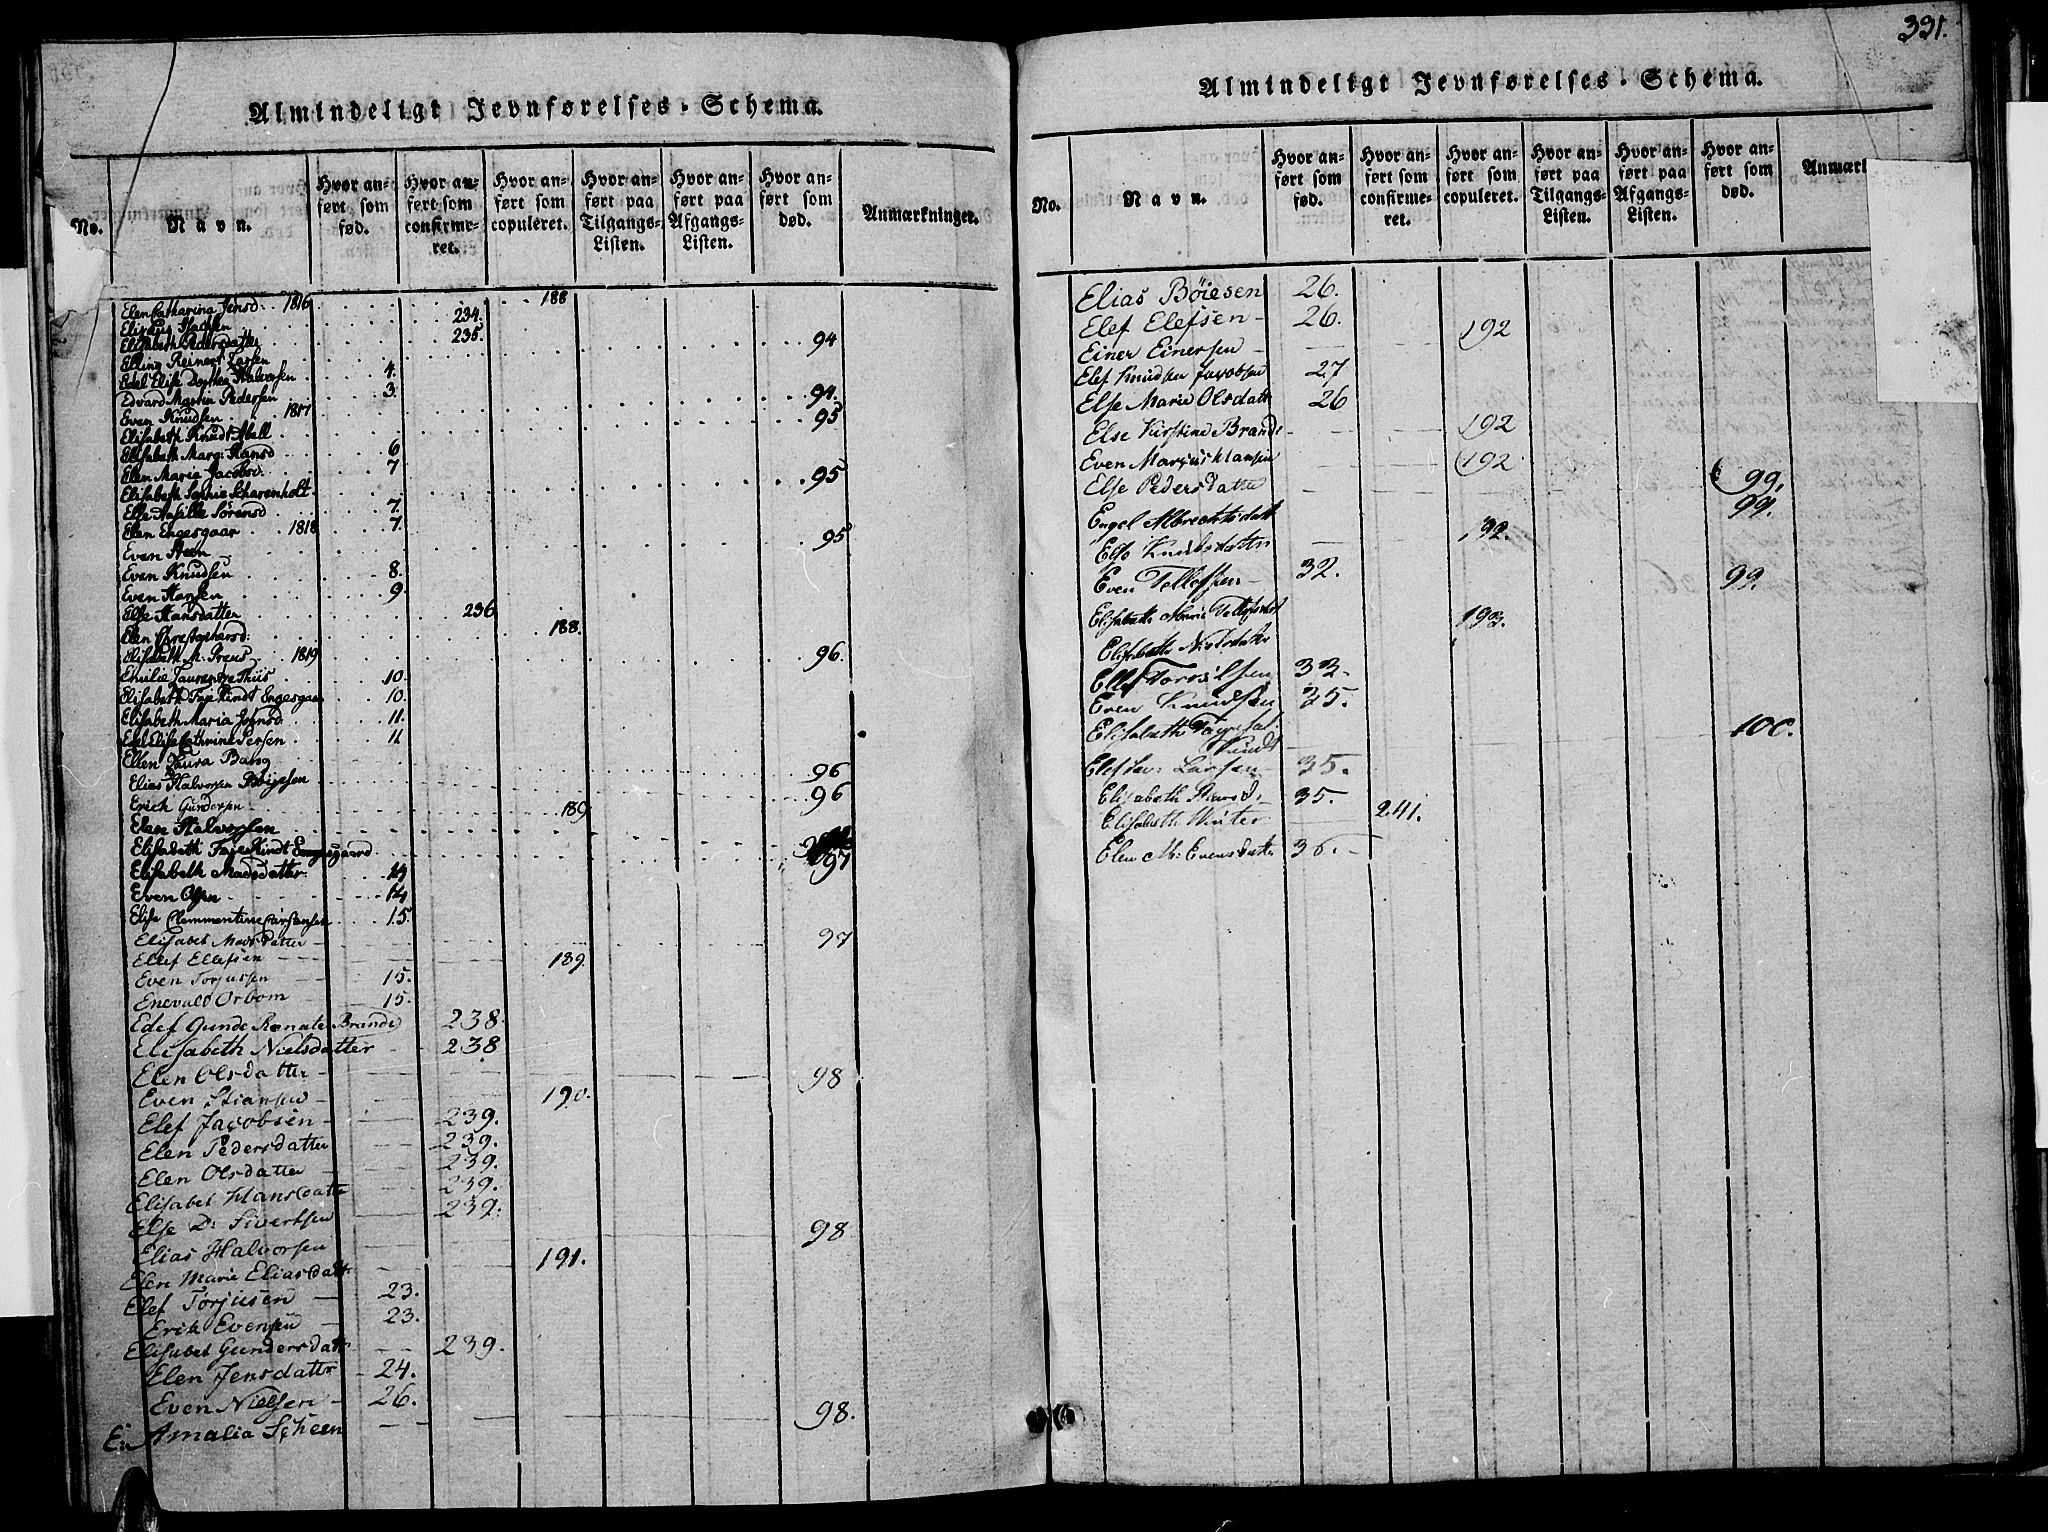 Almindeligt Jevnførelses-Schema.
No.
Navn.
Hvor anført som fød.
Hvor anført som confirmeret.
Hvor anført som copuleret.
Hvor anført paa Tilgangs-Listen.
Hvor anført paa Afgangs-Listen.
Hvor anført som død.
Anmærkninger.
Elen Catharina Jensd. 1816 188
234.
Elisabeth Pedersdatter 235.
Elling Reinert Larsen 94
Edel Elise Dorthea Halvorsen 4.
Edvard Martin Pedersen 3.
Even Knudsen 1817 94.
Elisabeth Knudt Abell 95
Elisabeth Marg: Hansd 6
Elen Maria Jacobsd. 7
Elisabeth Sophie Scharenholt 95
Else Sørensd 7.
Elen Engesgaar 1818 7.
Even Steen 95
Even Knudsen 8.
Even Hansen 9.
Else Hansdatter 236
Elen Christophersd: 188.
Elisabeth M. Preus 1819 96.
Emilie Laurentze Thiis 10.
Elisabeth Faye Kindt Engesgaar 10.
Elisabeth Maria Johnsd. 11.
Edel Elise Cathrine Persen 11
Ellen Laura Bang
Elias Halvorsen Bøigesen 96
Erich Gundersen 96
Elen Halvorsen 189
Elisabeth Faye Kindt Engesgaard 97
Elisabeth Madsdatter 14
Even Olsen 14
Elise Clemmentine Carstensen 15.
Elisabet Madsdatter 97
Elef Ellefsen 189.
Even Torjussen 15.
Enevald Orbom 15.
Edef Gunde Renate Brandt 238.
Elisabeth Nielsdatter 238
Elen Olsdatter 98
Even Stiansen 190.
Elef Jacobsen 239.
Elen Pedersdatter 239.
Elen Olsdatter 239.
Elisabet Hansdatter 239.
Else D: Sivertsen 239.
Elias Halvorsen 98
Elen Marie Eliasdatt. 191.
Elef Torjusen 23.
Erik Evensen 23.
Elisabet Gundersdatt 239.
Elen Jensdattr 24.
Even Nielsen 26.
Amalia Scheen 98.
331.
Almindeligt Jevnførelses-Schema.
No.
Navn.
Hvor anført som fød.
Hvor anført som confirmeret.
Hvor anført som copuleret.
Hvor anført paa Tilgangs-Listen.
Hvor anført paa Afgangs-Listen.
Hvor anført som død.
Anmærk
Elias Böiesen 26.
Elef Elefsen 26.
Einer Einersen 192
Elef Knudsen Jacobsen 27
Else Marie Olsdattr 26
Else Kirstine Brandt 192
Even Marius Hansen 192
Else Pedersdatter 99.
Engel Albrechtsdatt 99.
Else Knudsdatter 192.
Even Tellefsen 32. 99.
Elisabeth Marie Tellefsdat 193.
Elisabeth Nielsdatter
Ellef Torkilsen 33.
Even Knudsen 35.
Elisabeth 100.
Kindt
Elef Larsen 35.
Elisabeth 35.
Elisabeth Winter 241.
Elen M: Evensdattr 36.